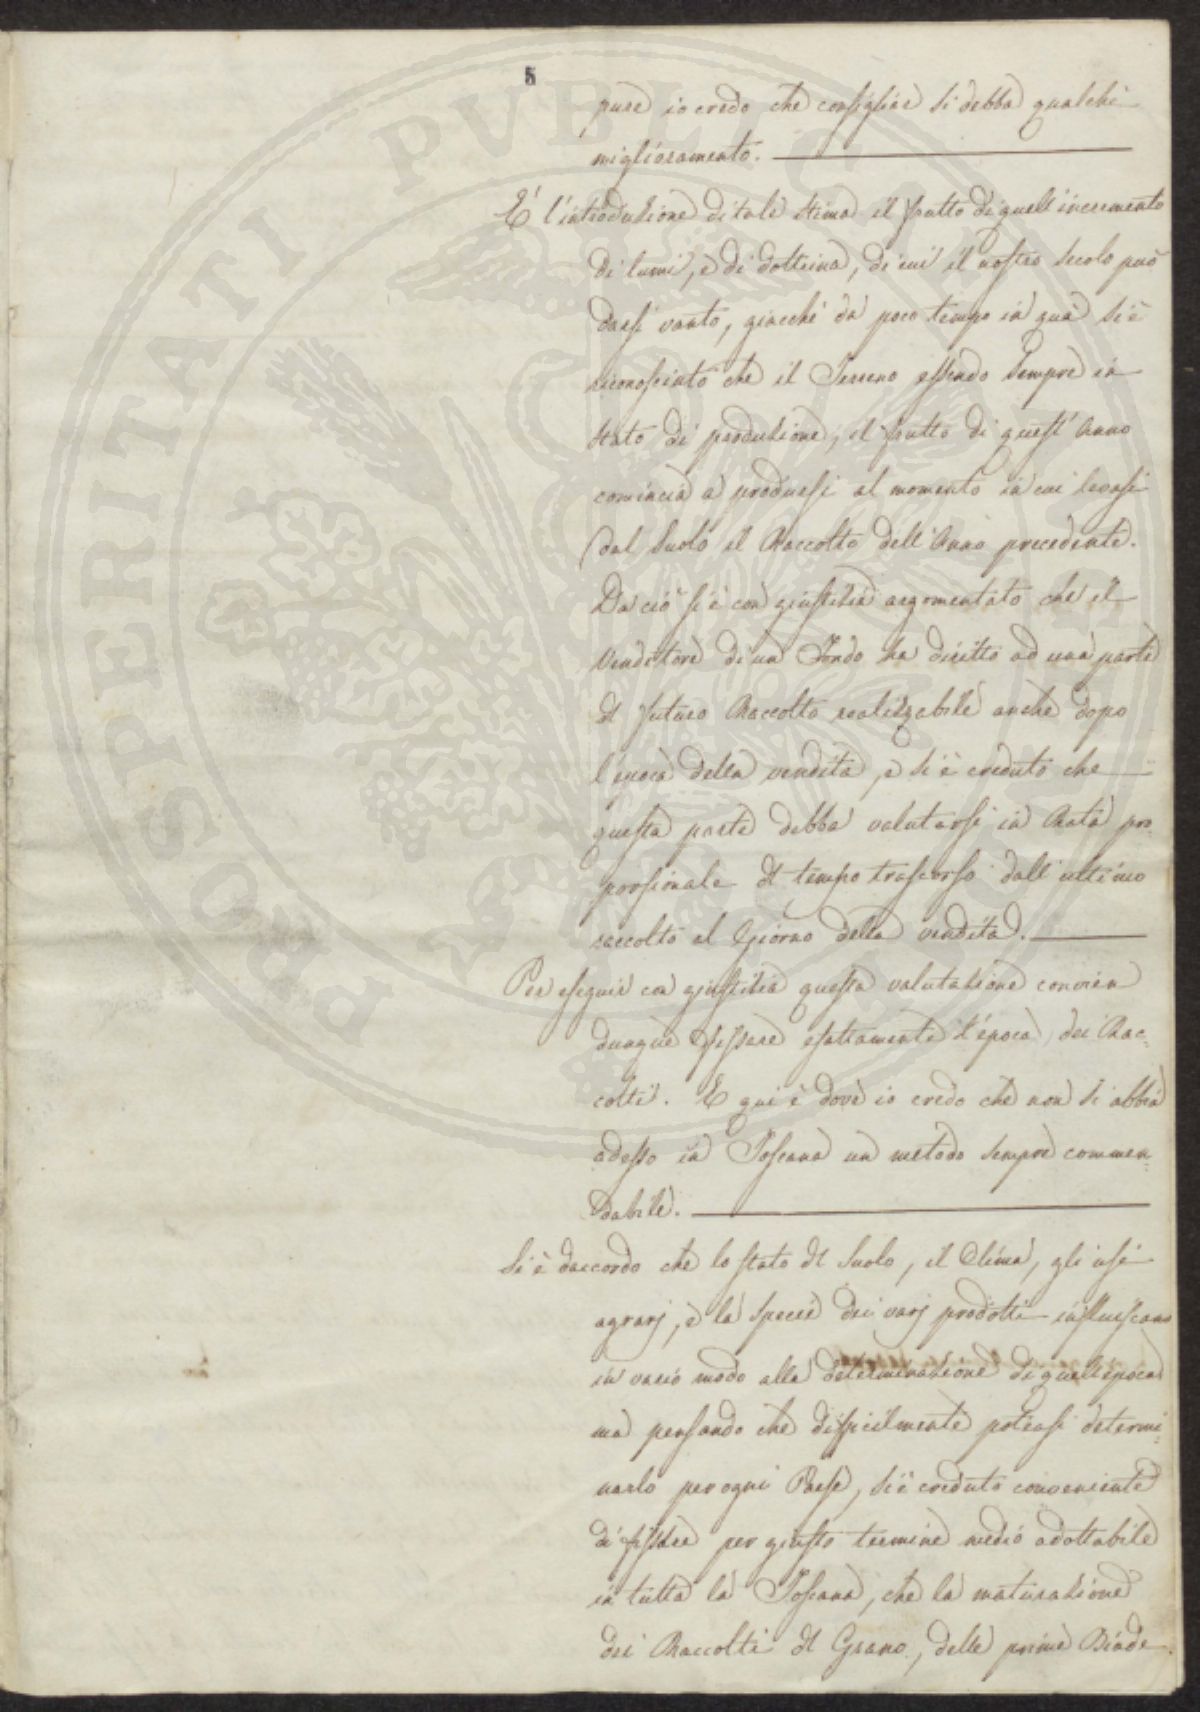 5
pure io credo che consigliar si debba qualche
miglioramento.
E' l'introduzione di tale stima il frutto di quell'incremento
di lumi, e di dottrina, di cui il nostro Secolo può
darsi vanto, giacchè da poco tempo in quà si è
riconosciuto che il Terreno essendo sempre in
stato di produzione, il frutto di quest'Anno
comincia a prodursi al momento in cui levasi
dal Suolo il Raccolto dell'Anno precedente.
Da ciò si è con giustizia argomentato che il
Venditore di un Fondo ha diritto ad una parte
del futuro Raccolto realizzabile anche dopo
l'epoca della vendita, e si è creduto che
questa parte debba valutarsi in Rata pro-
porzionale del tempo trascorso dall'ultimo
raccolto al Giorno della vendita.
Per eseguir con giustizia questa valutazione convien
dunque fissare esattamente l'epoca dei Rac-
colti. E qui è dove io credo che non si abbia
adesso in Toscana un metodo sempre commen-
dabile.
Si è daccordo che lo stato del Suolo, il Clima, gli usi
agrarj, e la specie dei varj prodotti influiscano
in vario modo alla determinazione di quell'epoca
ma pensando che difficilmente poteasi determi-
narlo per ogni Paese, si è creduto conveniente
di fissare per giusto termine medio adottabile
in tutta la Toscana, che la maturazione
dei Raccolti del Grano, delle prime Biade
PROSPERITATI PUBLICAE